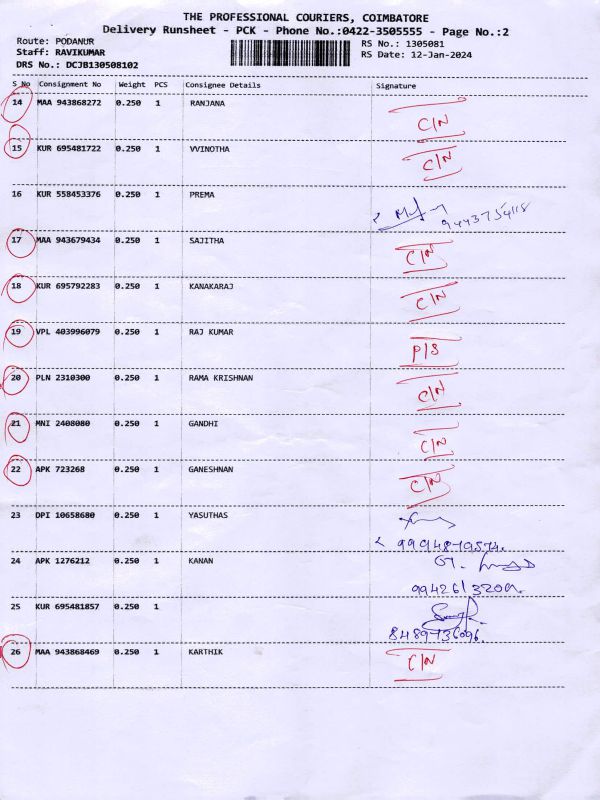 THE PROFESSIONAL COURIERS, COIMBATORE
Delivery Runsheet - PCK - Phone No.:0422-3505555 - Page No.:2
Route: PODANUR
RS No.: 1305081
Staff: RAVIKUMAR
RS Date: 12-Jan-2024
DRS No.: DCJB130508102
S No Consignment No Weight PCS Consignee Details Signature
14 MAA 943868272 0.250 1 RANJANA C/N
15 KUR 695481722 0.250 1 VVINOTHA C/N
16 KUR 558453376 0.250 1 PREMA
9443754118
17 MAA 943679434 0.250 1 SAJITHA C/N
18 KUR 695792283 0.250 1 KANAKARAJ C/N
19 VPL 403996079 0.250 1 RAJ KUMAR P/S
20 PLN 2310300 0.250 1 RAMA KRISHNAN C/N
21 MNI 2408080 0.250 1 GANDHI C/N
22 APK 723268 0.250 1 GANESHNAN C/N
23 DPI 10658680 0.250 1 YASUTHAS
24 APK 1276212 0.250 1 KANAN
25 KUR 695481857 0.250 1
26 MAA 943868469 0.250 1 KARTHIK C/N